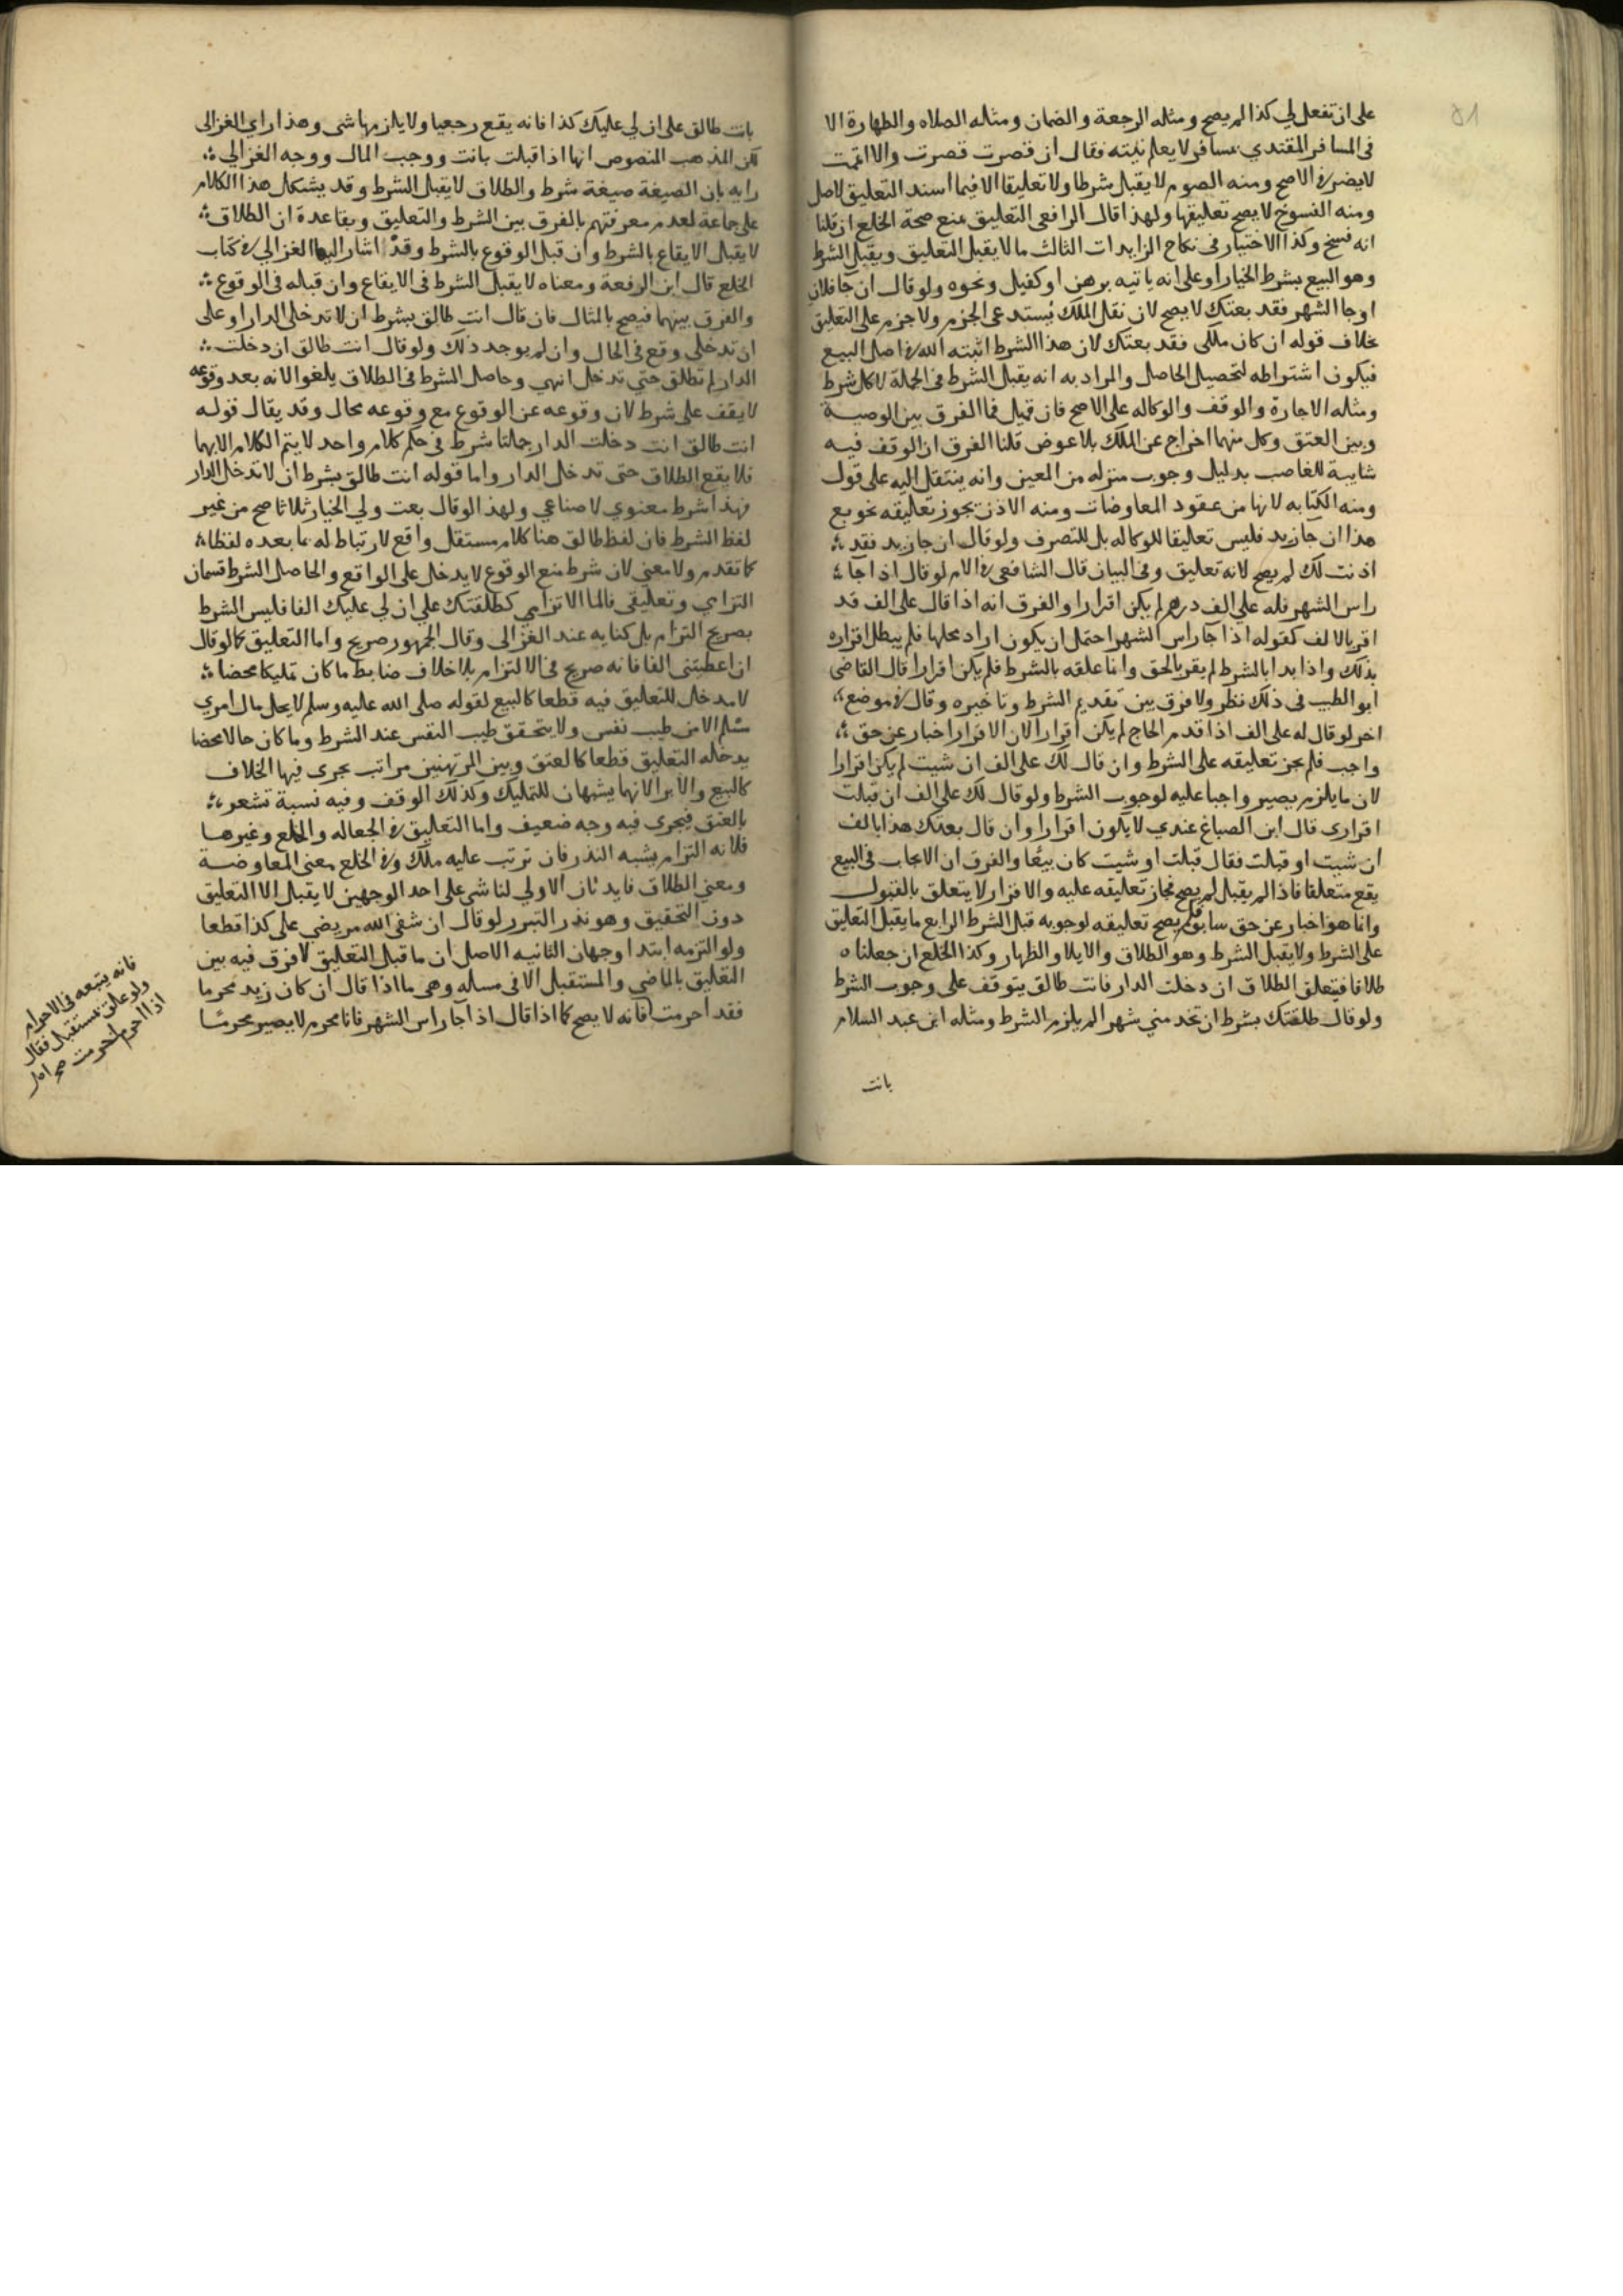 ٥١
على ان تفعل لي كذا لم يصح ومثله الرجعة والضمان ومثله الصلاه والطهارة الا
في المسافر المقتدي بمسافر لا يعلم نيته فقال ان قصرت قصرت والا اتممت
لا يضر في الاصح ومنه الصوم لا يقبل شرطا ولا تعليقا الا فيما اسند التعليق لاصل
ومنه الفسوخ لا يصح تعليقها ولهذا قال الرافعي التعليق يمنع صحة الخلع ان قلنا
انه فسخ وكذا الاختيار في نكاح الزايدات الثالث ما لا يقبل التعليق ويقبل الشرط
وهو البيع بشرط الخيار او على انه ياتيه برهن او كفيل ونحوه ولو قال ان جا فلان
او جا الشهر فقد بعتك لا يصح لان نقل الملك يستدعي الجزم ولا جزم على التعليق
بخلاف قوله ان كان ملكي فقد بعتك لان هذا الشرط اثبته الله في اصل البيع
فيكون اشتراطه لتحصيل الحاصل والمراد به انه يقبل الشرط في الجملة لا كل شرط
ومثله الاجارة والوقف والوكاله على الاصح فان قيل فما الفرق بين الوصية
وبين العتق وكل منهما اخراج عن الملك بلا عوض قلنا الفرق ان الوقف فيه
شايبة للغاصب بدليل وجوب منزله من المعين وانه ينتقل اليه على قول
ومنه الكتابه لانها من عقود المعاوضات ومنه الاذن يجوز تعليقه نحو بع
هذا ان جا زيد فليس تعليقا للوكاله بل للتصرف ولو قال ان جا زيد فقد
اذنت لك لم يصح لانه تعليق وفي البيان قال الشافعي في الام لو قال اذا جا
راس الشهر فله علي الف درهم لم يكن اقرارا والفرق انه اذا قال على الف قد
اقر بالالف كقوله اذا جا راس الشهر احتمل ان يكون اراد محلها فلم يبطل اقراره
بذلك واذا بدا بالشرط لم يقر بالحق وانما علقه بالشرط فلم يكن اقرارا قال القاضي
ابو الطيب في ذلك نظر ولا فرق بين تقديم الشرط وتاخيره وقال في موضع
اخر لو قال له على الف اذا قدم الحاج لم يكن اقرارا لان الاقرار اخبار عن حق
واجب فلم يجز تعليقه على الشرط وان قال لك على الف ان شيت لم يكن اقرارا
لان ما يلزم يصير واجبا عليه لوجوب الشرط ولو قال لك علي الف ان قبلت
اقراري قال ابن الصباغ عندي لا يكون اقرارا وان قال بعتك هذا بالف
ان شيت او قبلت فقال قبلت او شيت كان بيعا والفرق ان الايجاب في البيع
يقع متعلقا فاذا لم يقبل لم يصح فجاز تعليقه عليه والاقرار لا يتعلق بالقبول
وانما هو اخبار عن حق سابق فلم يصح تعليقه لوجوبه قبل الشرط الرابع ما يقبل التعليق
على الشرط ولا يقبل الشرط وهو الطلاق والايلا والظهار وكذا الخلع ان جعلناه
طلاقا فيتعلق الطلاق ان دخلت الدار فانت طالق يتوقف على وجوب الشرط
ولو قال طلقتك بشرط ان تخدمني شهرا لم يلزم الشرط ومثله ابن عبد السلام
بانت
بانت طالق على ان لي عليك كذا فانه يقع رجعيا ولا يلزمها شى وهذا راي الغزالى
لكن المذهب المنصوص انها اذا قبلت بانت ووجب المال ووجه الغزالي
رايه بان الصيغة صيغة شرط والطلاق لا يقبل الشرط وقد يشكل هذا الكلام
على جماعة لعدم معرفتهم بالفرق بين الشرط والتعليق وبقاعدة ان الطلاق
لا يقبل الايقاع بالشرط وان قبل الوقوع بالشرط وقد اشار اليها الغزالي في كتاب
الخلع قال ابن الرفعة ومعناه لا يقبل الشرط في الايقاع وان قبله في الوقوع
والفرق بينهما فيصح بالمثال فان قال انت طالق بشرط ان لا تدخلى الدار او على
ان تدخلى وقع في الحال وان لم يوجد ذلك ولو قال انت طالق ان دخلت
الدار لم تطلق حتى تدخل انتهى وحاصل الشرط في الطلاق يلغو الانه بعد وقوعه
لا يقف على شرط لان وقوعه عن الوقوع مع وقوعه محال وقد يقال قوله
انت طالق انت دخلت الدار جملتا شرط في حكم كلام واحد لا يتم الكلام الا بهما
فلا يقع الطلاق حتى تدخل الدار واما قوله انت طالق بشرط ان لا تدخل الدار
فهذا شرط معنوي لا صناعي ولهذا لو قال بعت ولي الخيار ثلاثا صح من غير
لفظ الشرط فان لفظ طالق هنا كلام مستقل واقع لا ارتباط له بما بعده لفظا
كما تقدم ولا معنى لان شرط منع الوقوع لا يدخل على الواقع والحاصل الشرط قسمان
التزامي وتعليقي فالما الالتزامي كطلقتك علي ان لي عليك الفا فليس الشرط
بصريح التزام بل كنايه عند الغزالى وقال الجمهور صريح واما التعليق كما لو قال
ان اعطيتني الفا فانه صريح في الالتزام بلا خلاف ضابط ما كان تمليكا محضا
لا مدخل للتعليق فيه قطعا كالبيع لقوله صلى الله عليه وسلم لا يحل مال امري
مسلم الا من طيب نفس ولا يتحقق طيب النفس عند الشرط وما كان حالا محضا
يدخله التعليق قطعا كالعتق وبين المرتهنين مراتب يجرى فيها الخلاف
كالبيع والابرا لانهما يشبهان للتمليك وكذلك الوقف وفيه نسبة تشعر
بالعتق فيجرى فيه وجه ضعيف واما التعليق في الجعاله والخلع وغيرهما
فلانه التزام يشبه النذر فان ترتب عليه ملك وفي الخلع معنى المعاوضة
ومعنى الطلاق فايدتان الاولى لنا شى على احد الوجهين لا يقبل الا التعليق
دون التحقيق وهو نذر التبرر لو قال ان شفى الله مريضي على كذا قطعا
ولو التزمه ابتدا وجهان الثانيه الاصل ان ما قبل التعليق لا فرق فيه بين
التعليق بالماضي والمستقبل الا في مساله وهى ما اذا قال ان كان زيد محرما
فقد احرمت فانه لا يصح كما اذا قال اذا جا راس الشهر فانا محرم لا يصير محرما
فانه يتبعه في الاحرام
ولو علق بمستقبل فقال
اذا احرم احرمت صح اصل